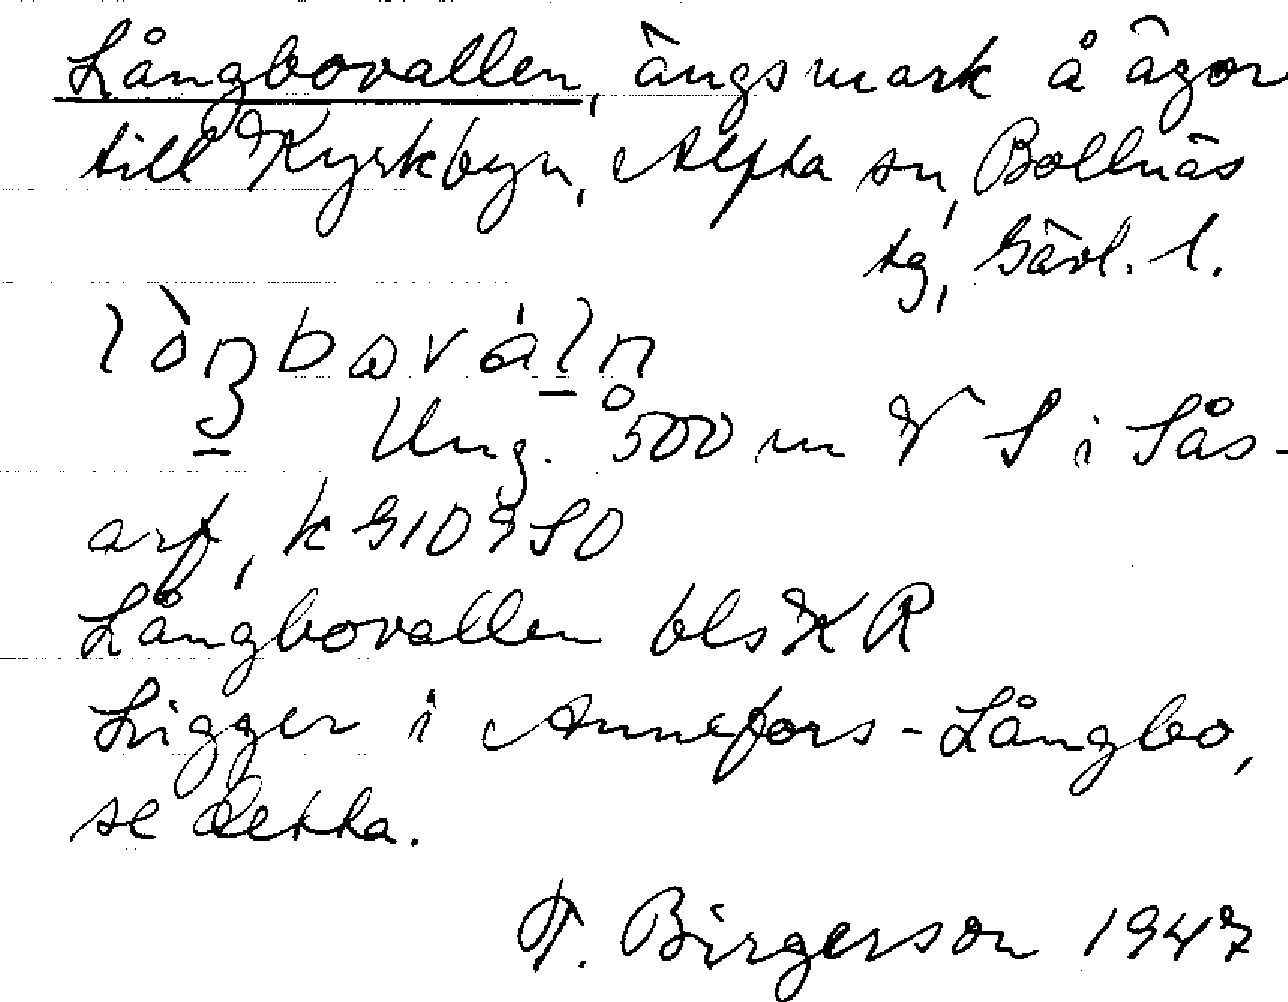 Långbovallen, ängsmark å ägor
till Kyrkbyn, Alfta sn, Bollnäs
tg, Gävl. l.
Ung. 500 m V S i Sås-
arf, k 910 9 SO
Långbovallen bls K R
Ligger i Annefors-Långbo,
se detta.
T. Birgerson 1947